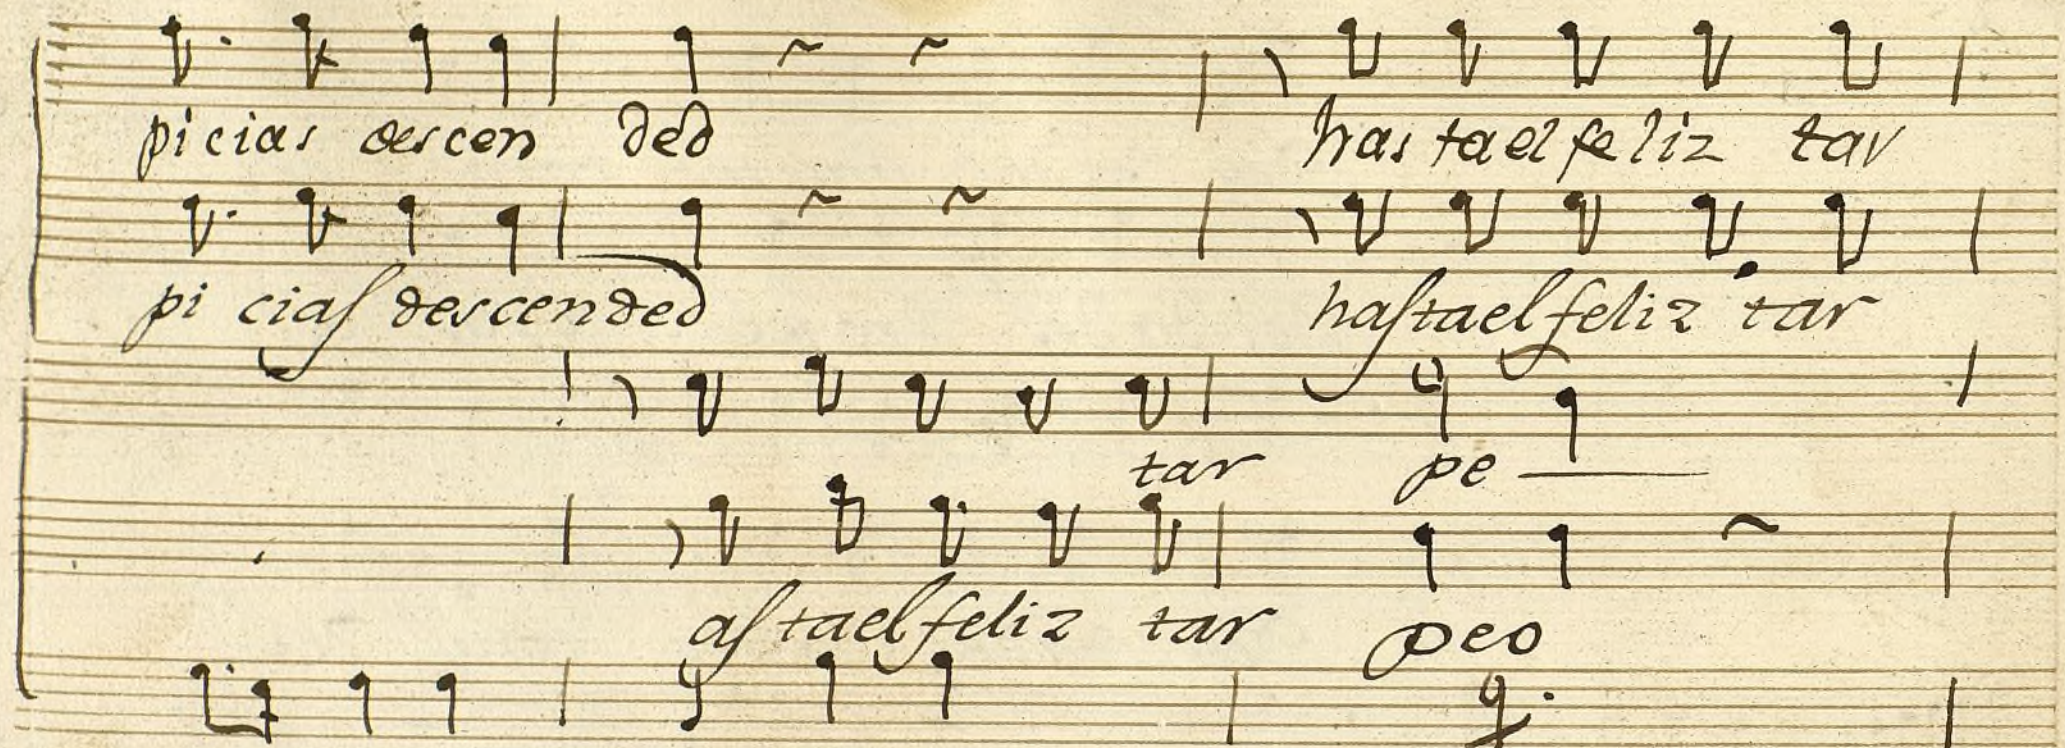 picias descen ded has tael feliz tar
pi ciaſ descended haſtael feliz tar
tar pe
aſtael feliz tar peo